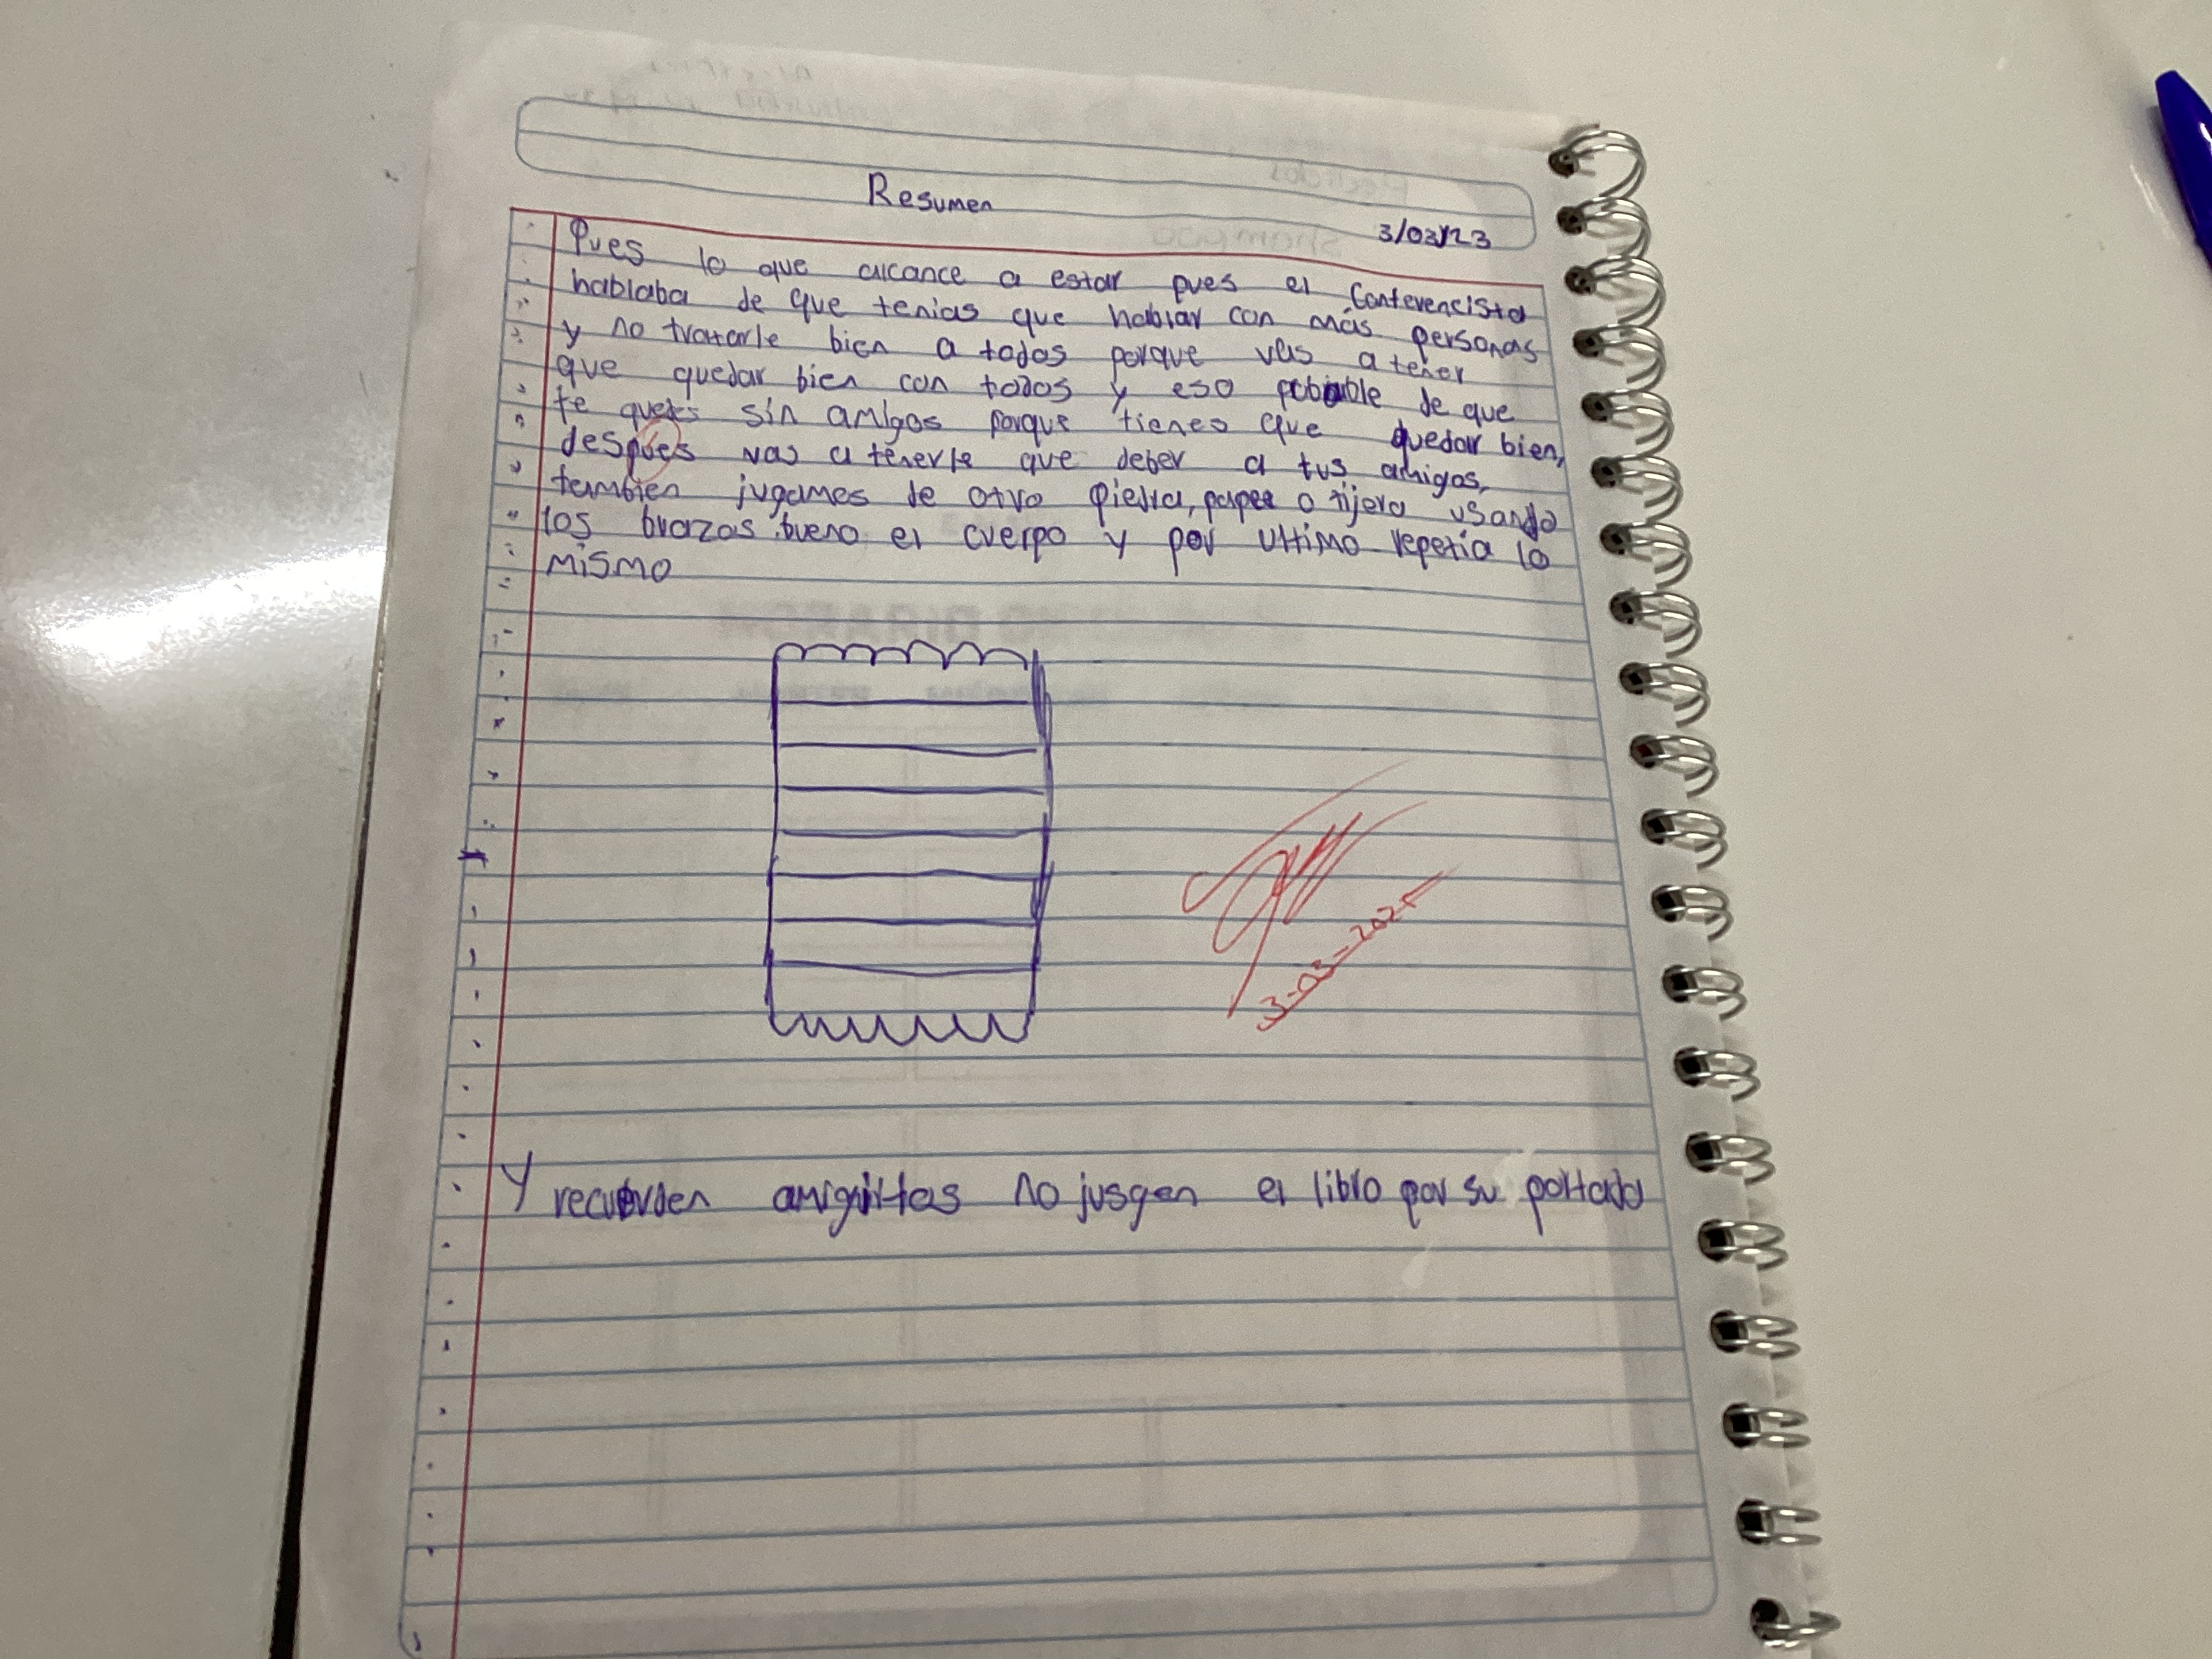 Resumen
3/03/23
Pues lo que alcance a estar pues el Conferencista
hablaba de que tenias que hablar con más personas
y no tratarle bien a todos porque vas a tener
que quedar bien con todos y eso de que
te quedes sin amigos porque tienes que quedar bien,
despúes vas a tenerle que deber a tus amigos,
tambien jugamos de otro Piedra, papel o tijera usando
los brazos bueno el cuerpo y por ultimo repetía lo
mismo
3-03-202
Y recuerden amiguitos no jusgen el libro por su portada